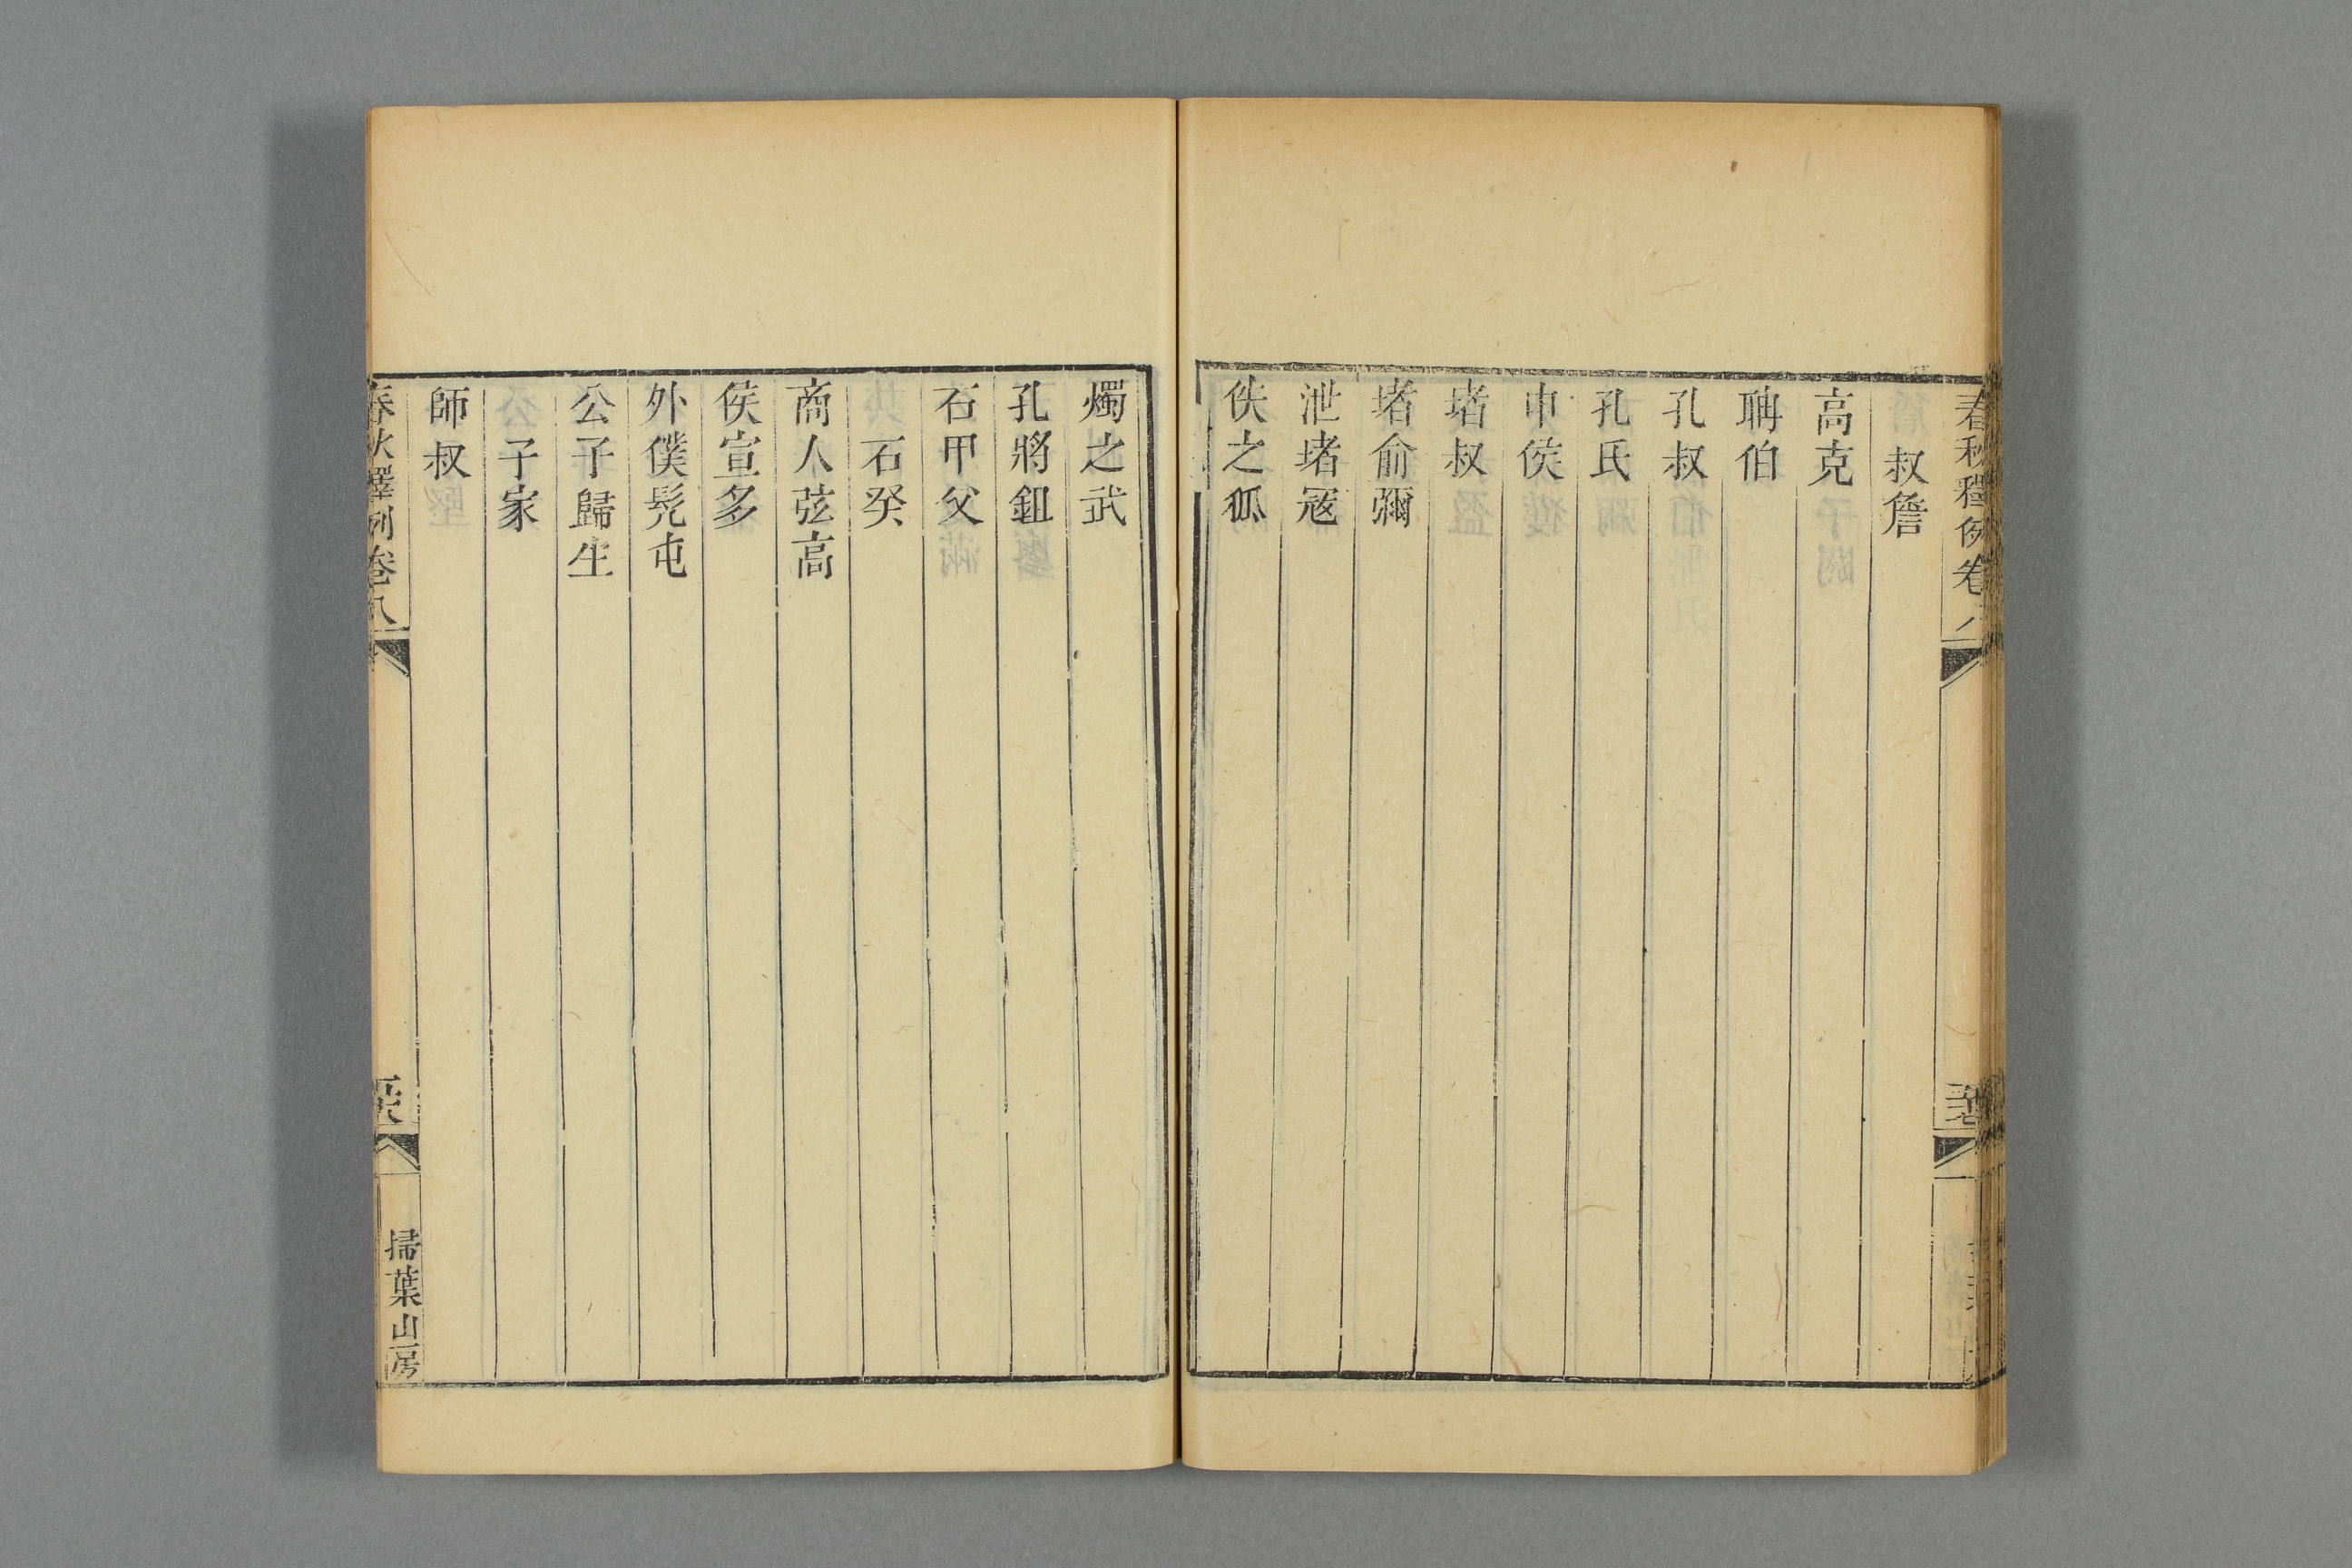 春秋釋例卷八
叔詹
高克
聃伯
孔叔
孔氏
申侯
堵叔
堵俞彌
泄堵寇
佚之狐
燭之武
孔將鉏
石甲父
石癸
商人弦高
侯宣多
外僕髡屯
公子歸生
子家
師叔
春秋釋例卷八
掃葉山房